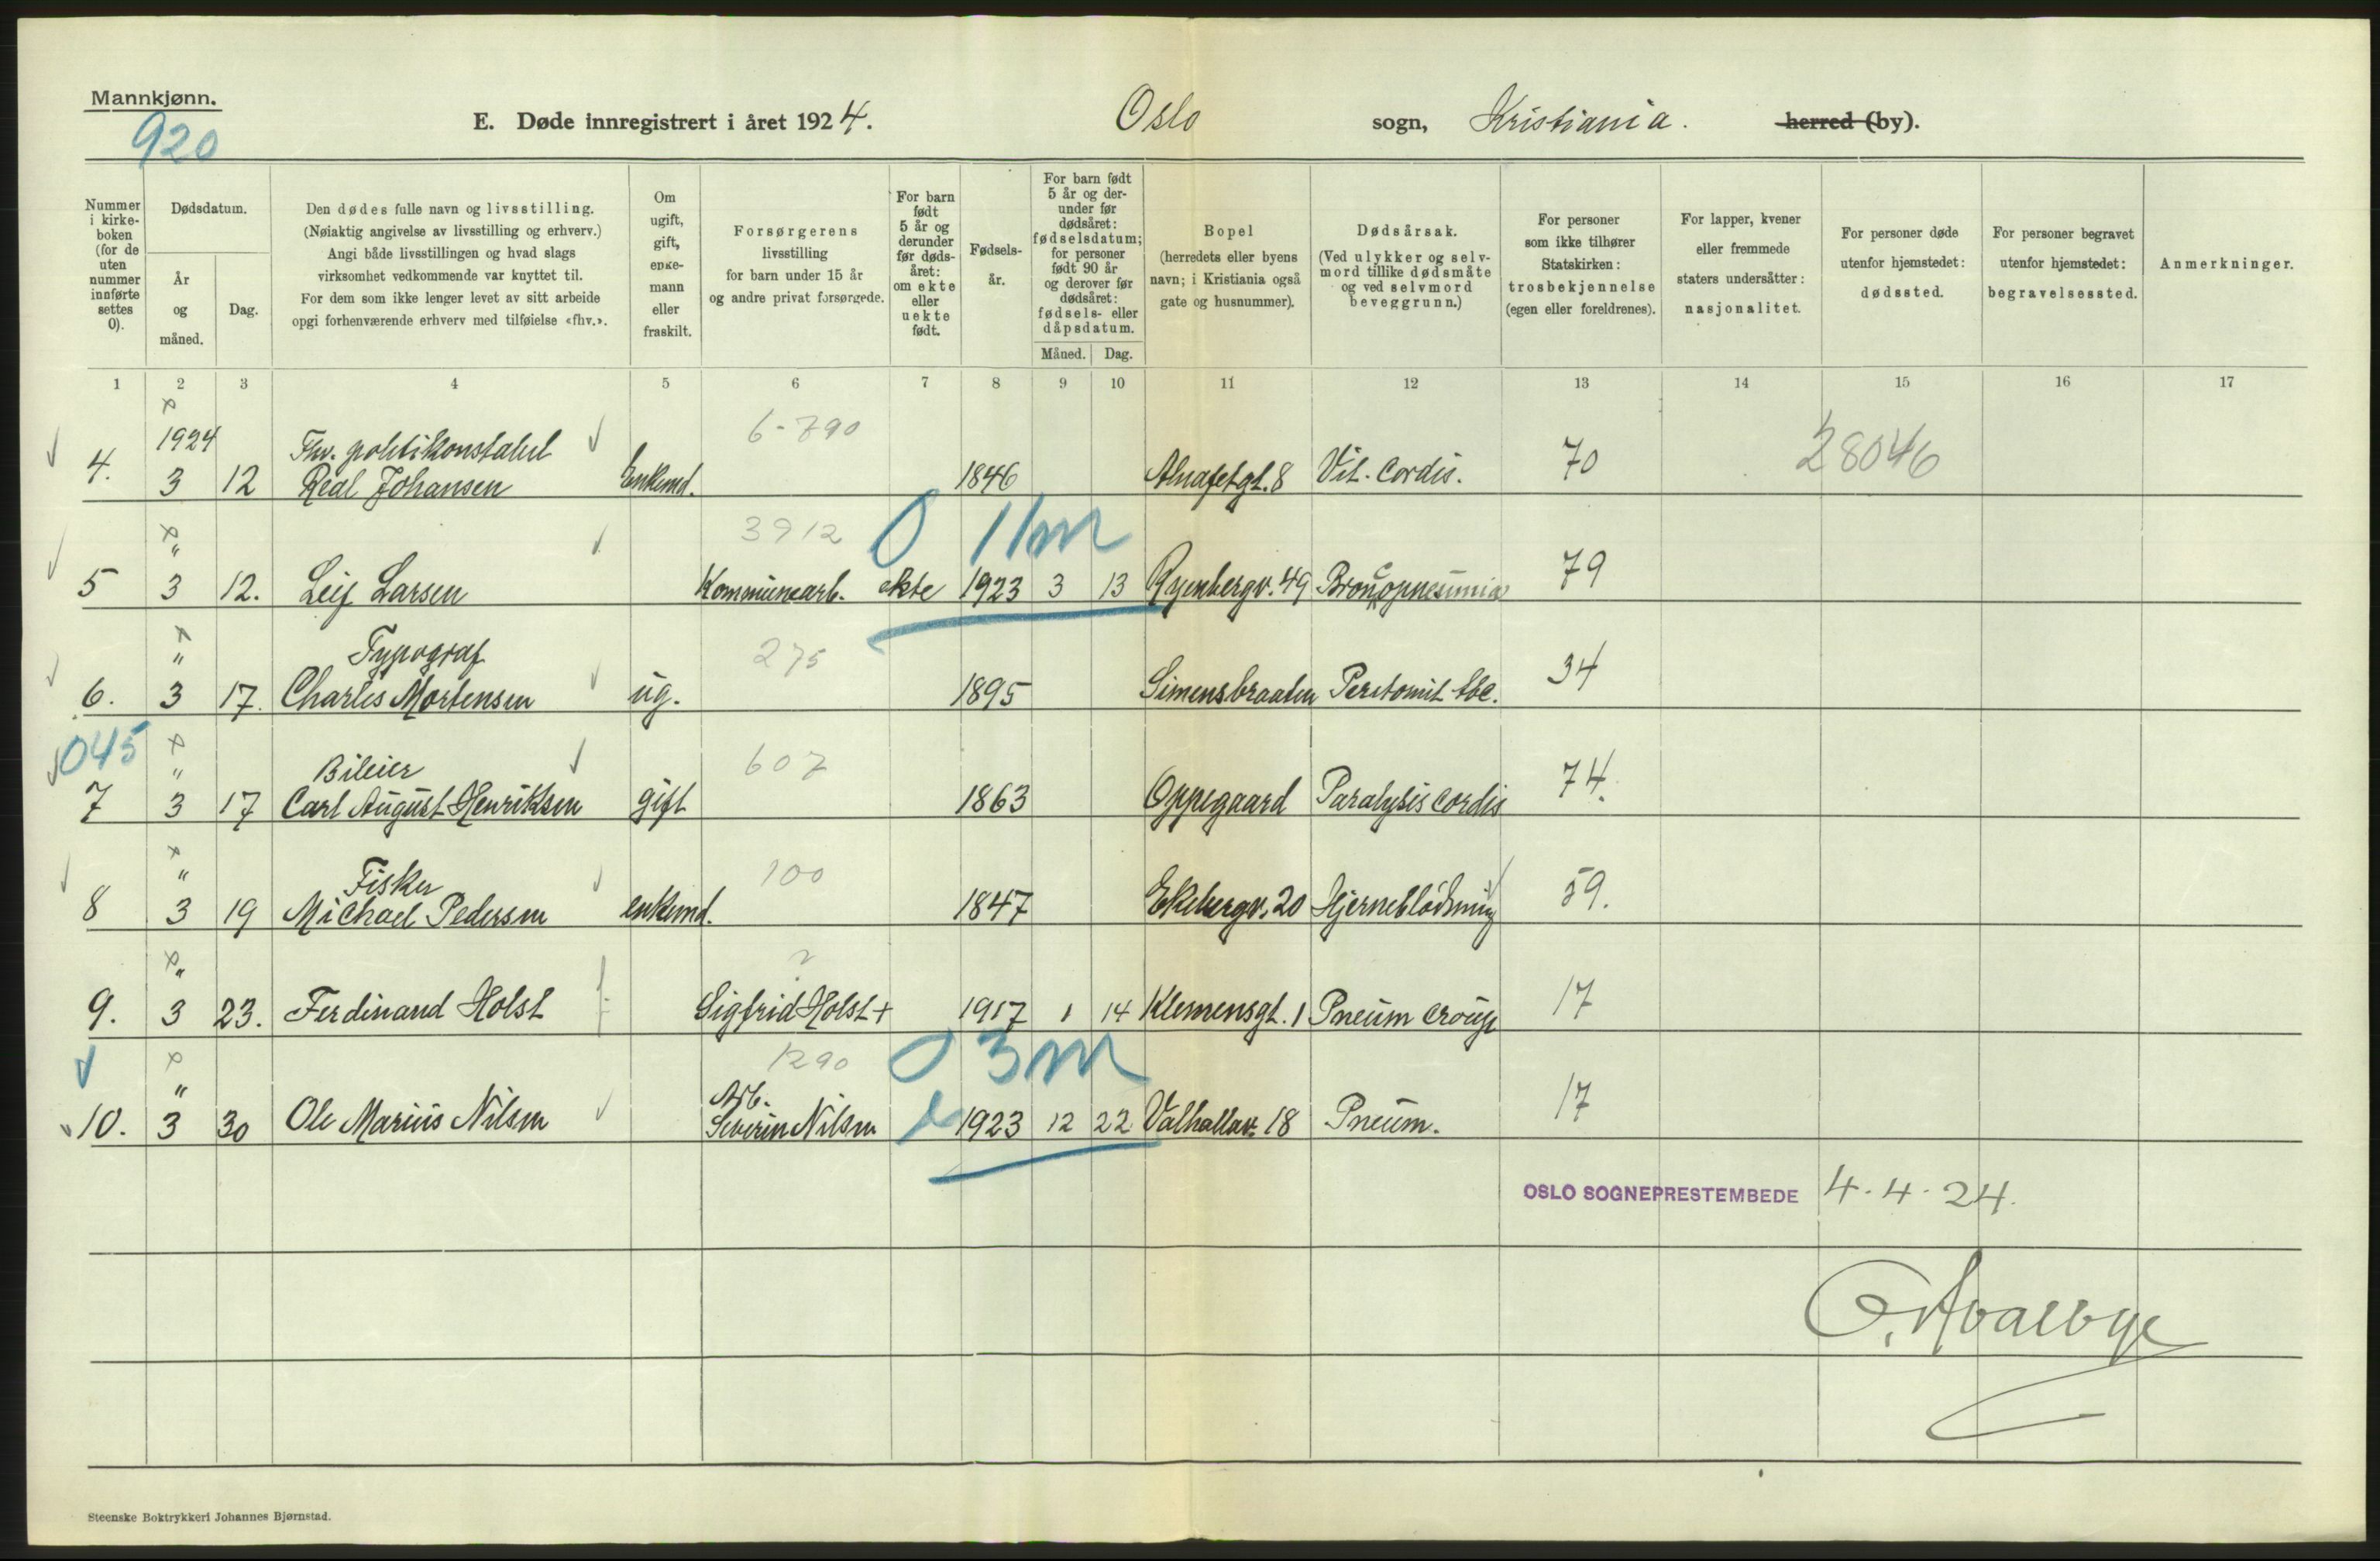 Mannkjønn.
920
E. Døde innregistrert i året 1924.
Oslo sogn, Kristiania. herred (by).
Nummer i kirke-boken (for de uten nummer innførte settes 0).
Dødsdatum.
År og måned.
Dag.
Den dødes fulle navn og livsstilling.
(Nøiaktig angivelse av livsstilling og erhverv.)
Angi både livsstillingen og hvad slags
virksomhet vedkommende var knyttet til.
For dem som ikke lenger levet av sitt arbeide
opgi forhenværende erhverv med tilføielse «fhv.».
Om ugift, gift, enke-mann eller fraskilt.
Forsørgerens
livsstilling
for barn under 15 år
og andre privat forsørgede.
For barn født 5 år og derunder før døds-året: om ekte eller uekte født.
Fødsels-år.
For barn født 5 år og der-under før dødsåret: fødselsdatum; for personer født 90 år og derover før dødsåret: fødsels- eller dåpsdatum.
Måned. Dag.
Bopel
(herredets eller byens
navn; i Kristiania også
gate og husnummer).
Dødsårsak.
(Ved ulykker og selv-
mord tillike dødsmåte
og ved selvmord
beveggrunn.)
For personer
som ikke tilhører
Statskirken:
trosbekjennelse
(egen eller foreldrenes).
For lapper, kvener
eller fremmede
staters undersåtter:
nasjonalitet.
For personer døde
utenfor hjemstedet:
dødssted.
For personer begravet
utenfor hjemstedet:
begravelsessted.
Anmerkninger.
1 2 3 4 5 6 7 8 9 10 11 12 13 14 15 16 17
1924 Fhv. politikonstabel 6-790
4. 3 12 Real Johansen Enkemd. 1846 Alnafetgt. 8 Vit. Cordis. 70 28046
" 3912 0 11m
5 3 12. Leif Larsen Kommunearb. ekte 1923 3 13 Ryenbergv. 49 Broncopneumnia 79
" Typograf 275
6. 3 17. Charles Mortensen ug. 1895 Simensbraaten Peritonit tbc. 34
045 " Bileier 607
7 3 17 Carl August Henriksen gift 1863 Oppegaard Paralysis cordis 74.
" Fisker 100
8 3 19 Michael Pedersen enkemd. 1847 Ekebergv. 20 Hjerneblödning 59.
"
9. 3 23. Ferdinand Holst Sigfrid Holst + 1917 1 14 Klemensgt. 1 Pneum croup 17
" 1290 0 3m
Arb.
10. 3 30 Ole Marius Nilsen Severin Nilsen 1923 12 22 Valhallav. 18 Pneum. 17
OSLO SOGNEPRESTEMBEDE 4.4.24.
Steenske Boktrykkeri Johannes Bjørnstad.